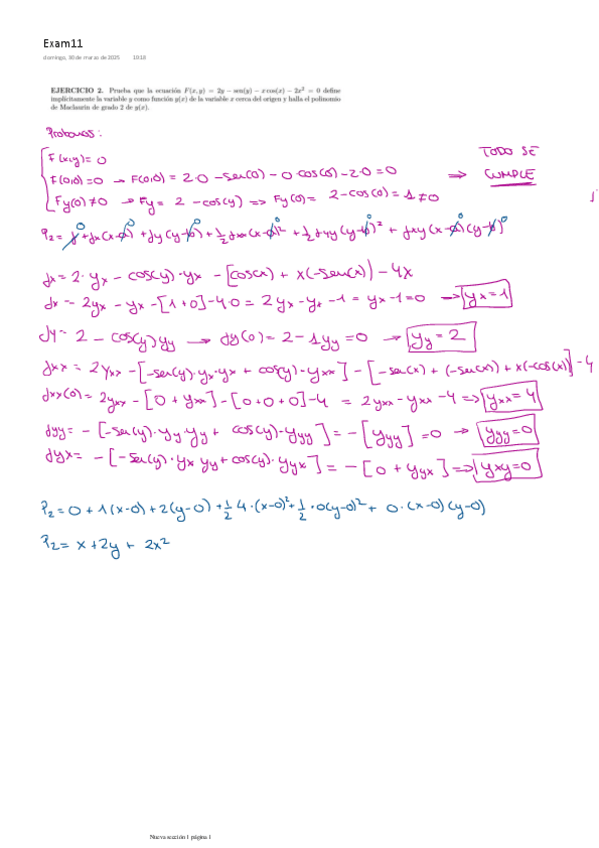 Exam11
domingo, 30 de marzo de 2025 10:18
EJERCICIO 2. Prueba que la ecuación F(x, y) = 2y − sen(y) − x cos(x) − 2x² = 0 define
implícitamente la variable y como función y(x) de la variable x cerca del origen y halla el polinomio
de Maclaurin de grado 2 de y(x).
Probamos:
F(x,y) = 0
TODO SE
F(0,0) = 0 → F(0,0) = 2·0 - sen(0) - 0·cos(0) - 2·0 = 0 ⇒ CUMPLE
Fy(0) ≠ 0 → Fy = 2 - cos(y) ⇒ Fy(0) = 2 - cos(0) = 1 ≠ 0
P₂ = f + fx(x-0) + fy(y-0) + 1/2 fxx(x-0)² + 1/2 fyy(y-0)² + fxy(x-0)(y-0)
fx = 2·yx - cos(y)·yx - [cos(x) + x(-sen(x))] - 4x
fx = 2yx - yx - [1+0] - 4·0 = 2yx - yx - 1 = yx - 1 = 0 → yx = 1
fy = 2 - cos(y) yy → fy(0) = 2 - 1yy = 0 → yy = 2
fxx = 2yxx - [-sen(y)·yx·yx + cos(y)·yxx] - [-sen(x) + (-sen(x)) + x(-cos(x))] - 4
fxx(0) = 2yxx - [0 + yxx] - [0+0+0] - 4 = 2yxx - yxx - 4 ⇒ yxx = 4
fyy = - [-sen(y)·yy yy + cos(y)·yyy] = - [yyy] = 0 → yyy = 0
fyx = - [-sen(y)·yx yy + cos(y)·yyx] = - [0 + yyx] ⇒ yxy = 0
P₂ = 0 + 1(x-0) + 2(y-0) + 1/2 4·(x-0)² + 1/2·0(y-0)² + 0·(x-0)(y-0)
P₂ = x + 2y + 2x²
Nueva sección 1 página 1